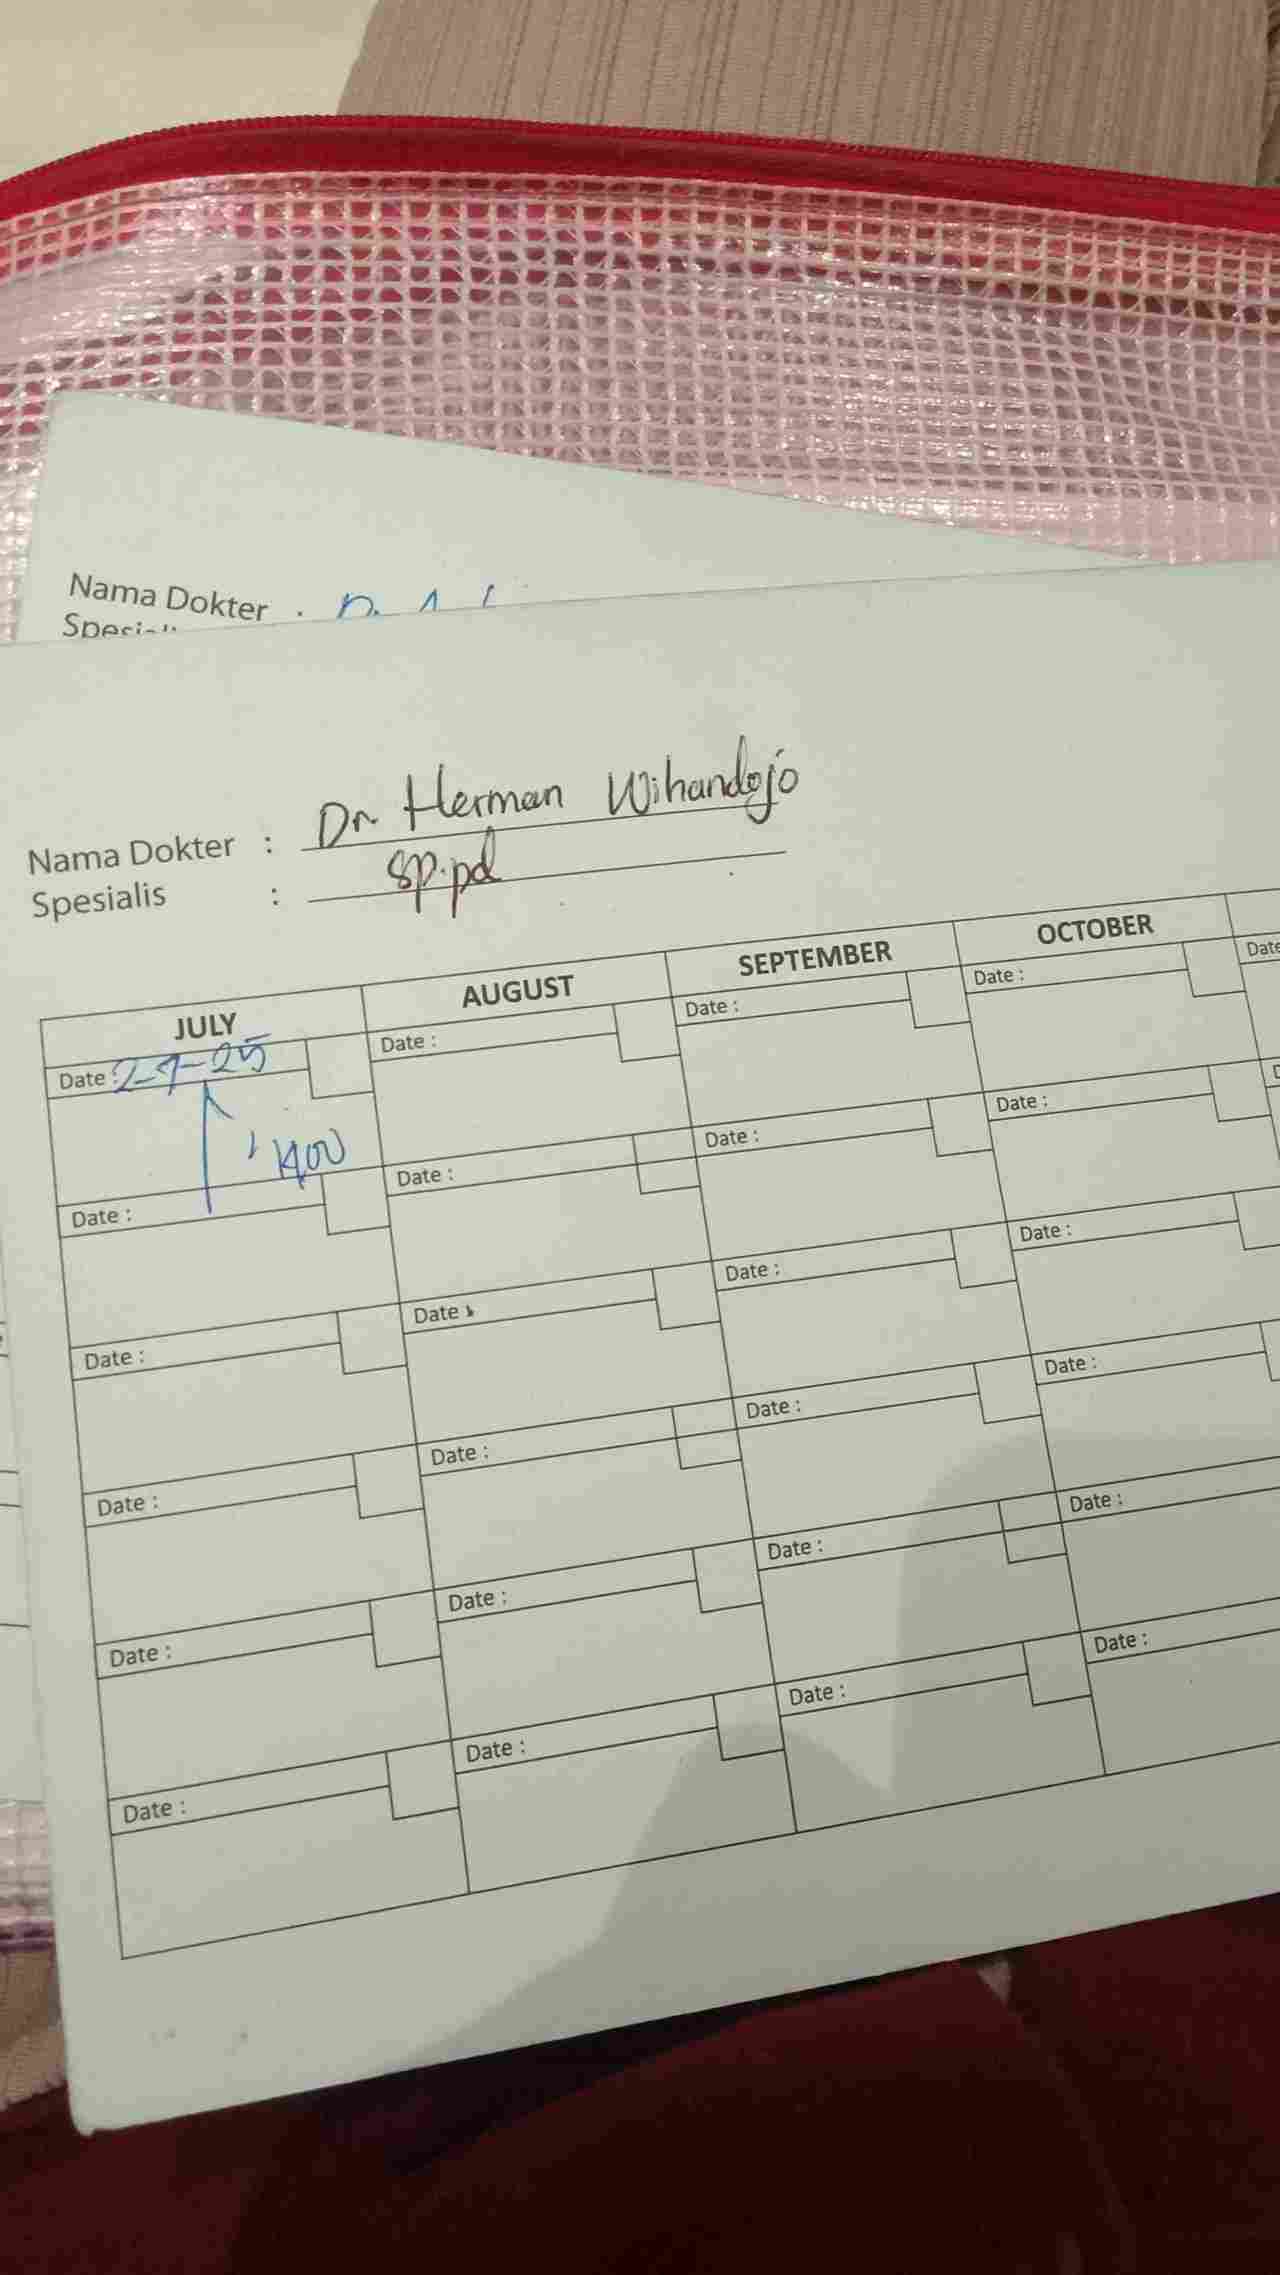 Nama Dokter :
Nama Dokter : Dr Herman Wihandojo
Spesialis : sp.pd
JULY AUGUST SEPTEMBER OCTOBER
Date : 2-7-25 Date : Date : Date : Date
Date : Date : Date : Date :
Date : Date : Date : Date :
Date : Date : Date : Date :
Date : Date : Date : Date :
Date : Date : Date : Date :